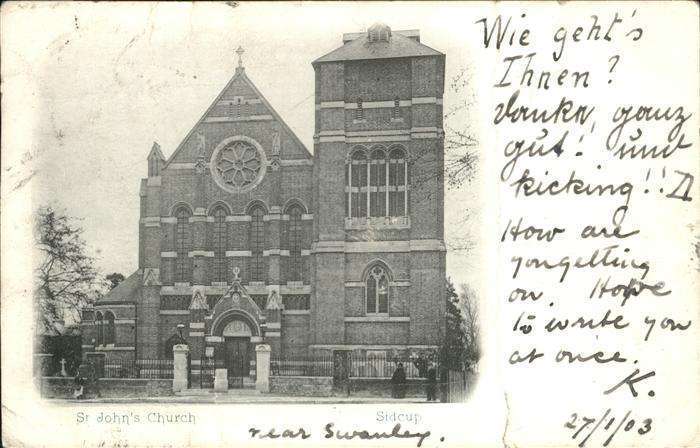 Wie geht's
Ihnen?
danke, ganz
gut! und
kicking!!
How are
you getting
on. Hope
to write you
at once.
K.
27/1/03
St John's Church Sidcup
near Swanley.